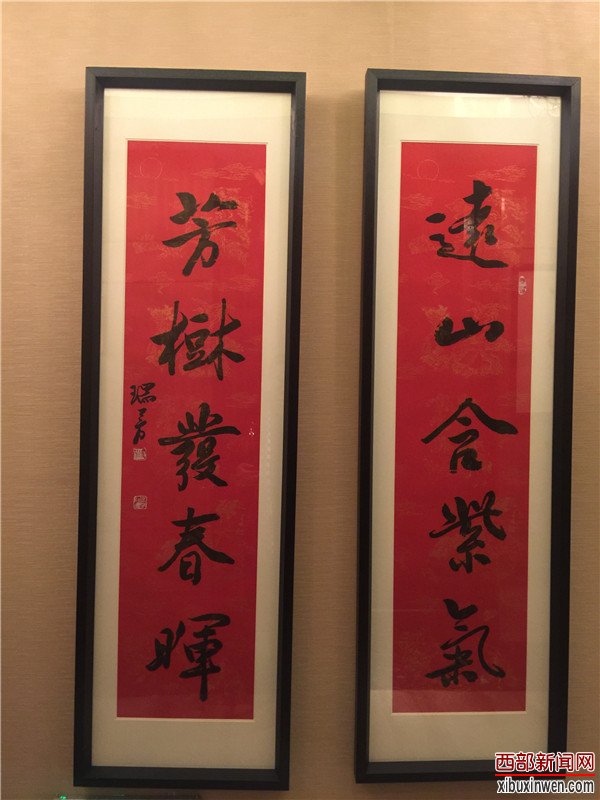 遠山含紫氣
芳樹發春暉
西部新闻网
xibuxinwen.com